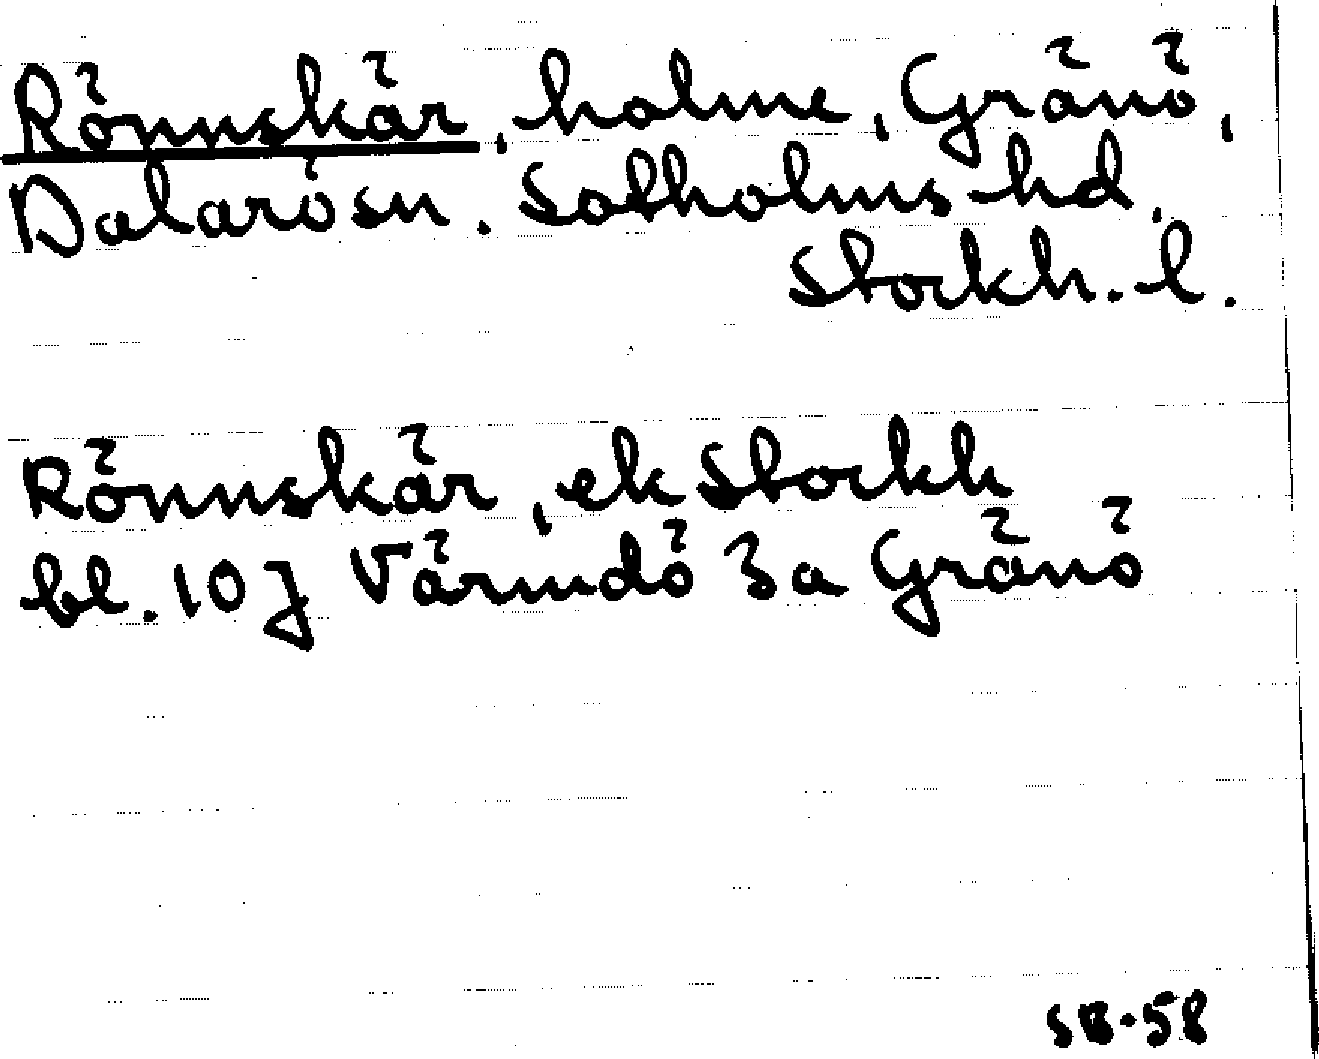 Rönnskär, holme, Gränö,
Dalarö sn. Sotholms hd,
Stockh. l.
Rönnskär, ek Stockh
bl. 10 J Värmdö 3a Gränö
SB.58